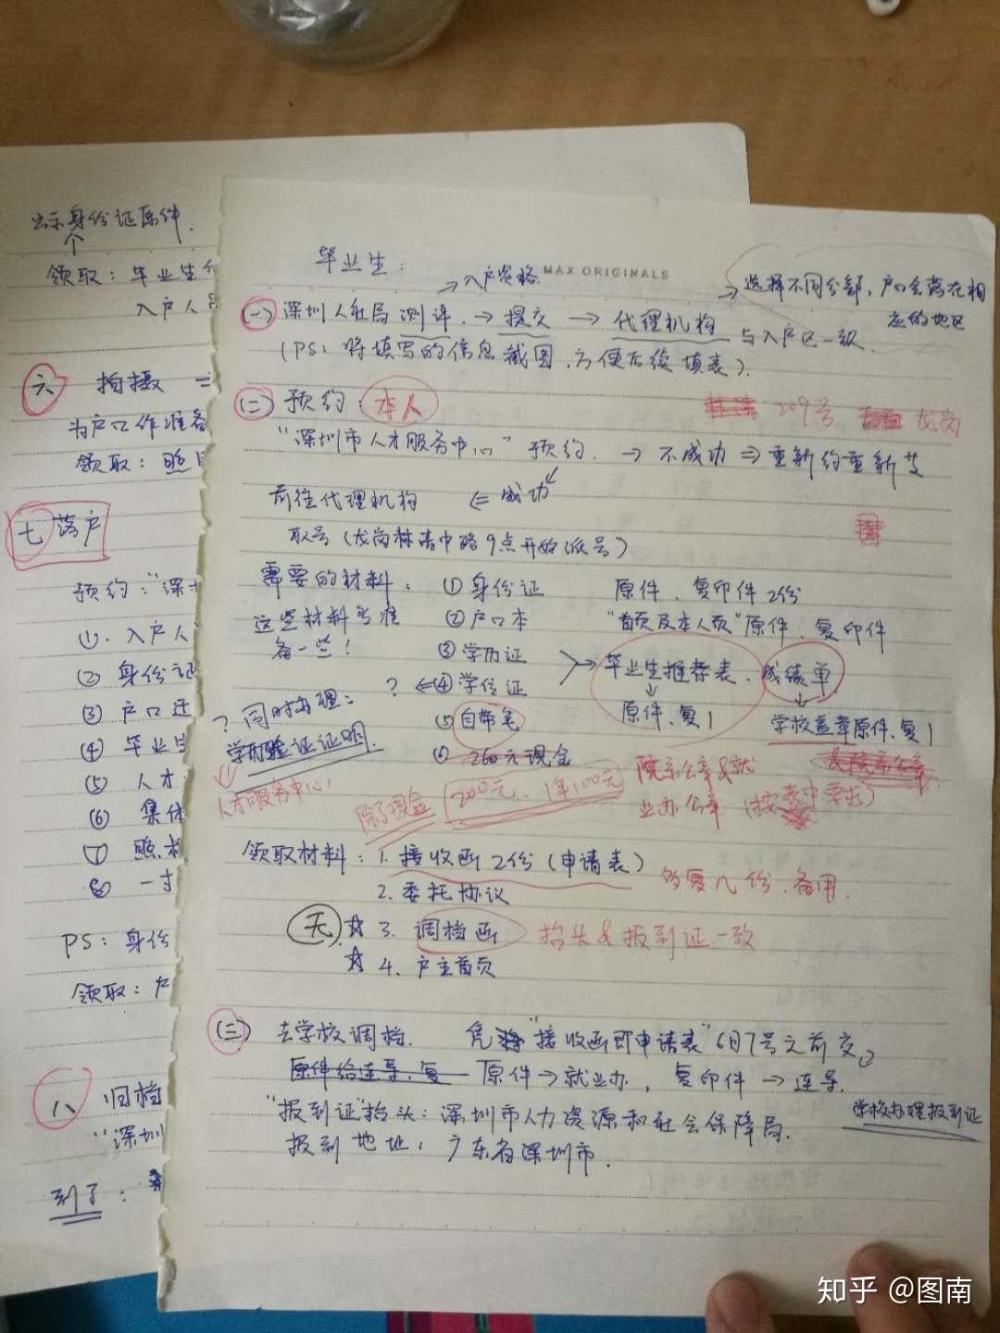 出示身份证原件
领取：毕业生
入户人
六 拍摄
为户口作准备
领取：照
七 落户
预约："深
①. 入户人
② 身份证
③ 户口迁
④ 毕业
⑤ 人才
⑥ 集体
⑦ 照
⑧ 一寸
PS：身份
领取：
八 归档
"深圳
到了：
毕业生：
MAX ORIGINALS
入户资格
选择不同分部，户口会落在相应的地区
(一) 深圳人社局测评，→提交→代理机构 与入户区一致.
(PS：将填写的信息截图，方便后续填表).
(二) 预约：本人
209号 龙岗
"深圳市人才服务中心" 预约. → 不成功 ⇒ 重新约重新
前往代理机构 ⇐ 成功
取号(龙岗林清中路9点开始派号)
需要的材料：① 身份证 原件、复印件2份
这些材料多准备一些！
② 户口本 "首页及本人页"原件、复印件
③ 学历证
? ⇐④ 学位证
毕业生推荐表、成绩单
原件、复1
学校盖章原件、复1
⑤ 自带笔
? 同时办理：
学历验证证明.
人才服务中心
⑥ 260元现金
除了现金 200元、1年100元
院系公章&就业办公章
领取材料：1. 接收函2份(申请表) 多复几份、备用.
2. 委托协议
无 ☆ 3. 调档函 抬头&报到证一致
☆ 4. 户主首页
(三) 去学校调档. 凭"接收函即申请表"6月7号之前交
原件给连导、复 原件→就业办，复印件→连导.
"报到证"抬头：深圳市人力资源和社会保障局.
学校办理报到证
报到地址：广东省深圳市.
知乎 @图南